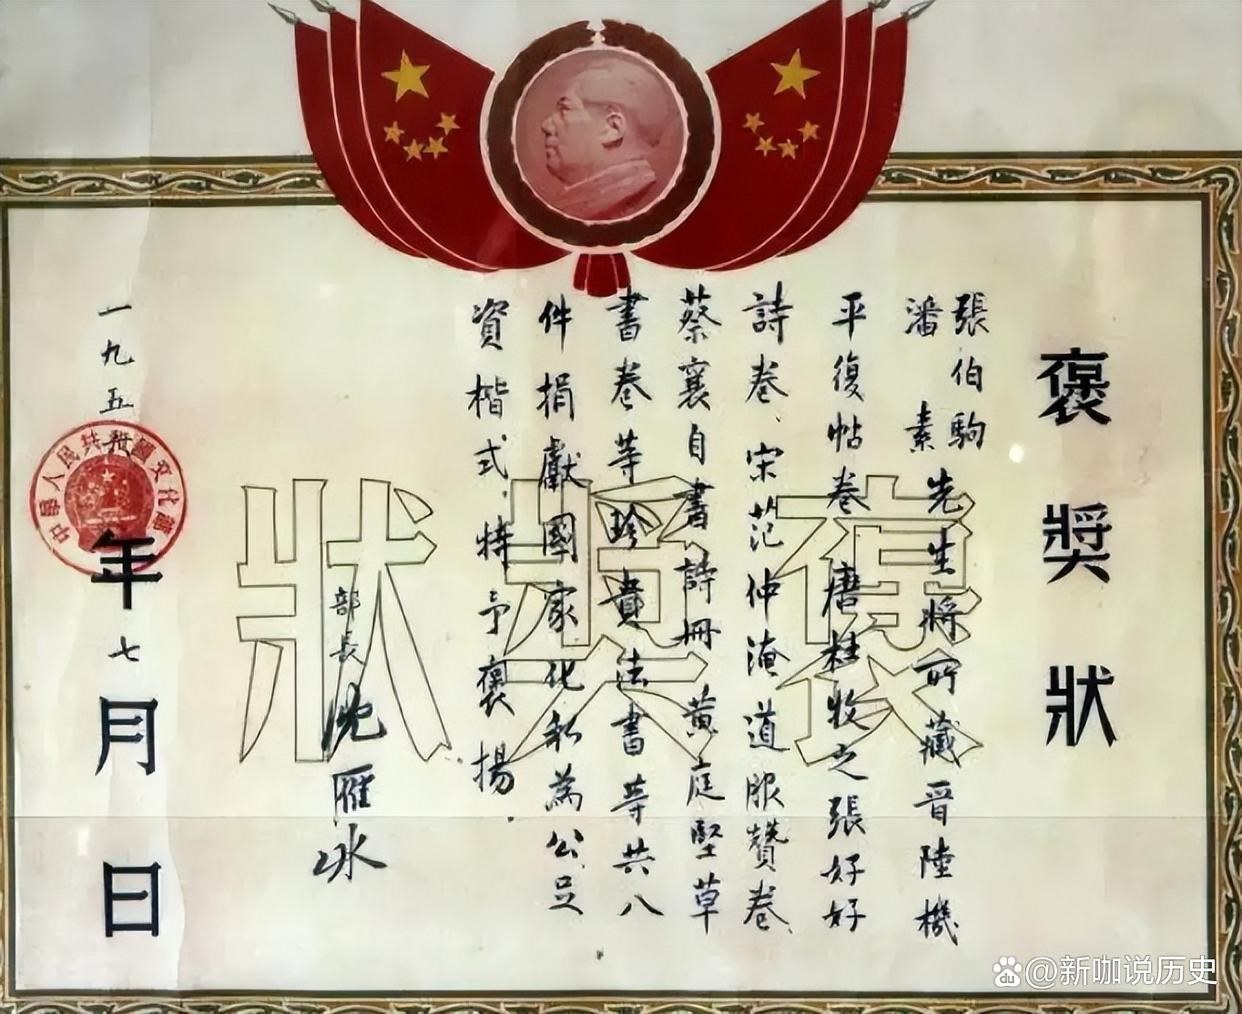 褒獎狀
張伯駒
潘素
先生將所藏晋陸機
平復帖卷唐杜牧之張好好
詩卷、宋范仲淹道服贊卷
蔡襄自書詩冊黃庭堅草
書卷等珍貴法書等共八
件捐獻國家化私為公足
資楷式.特予褒揚.
褒獎狀
部長沈雁冰
一九五年七月日
中華人民共和國文化部
du @新咖说历史